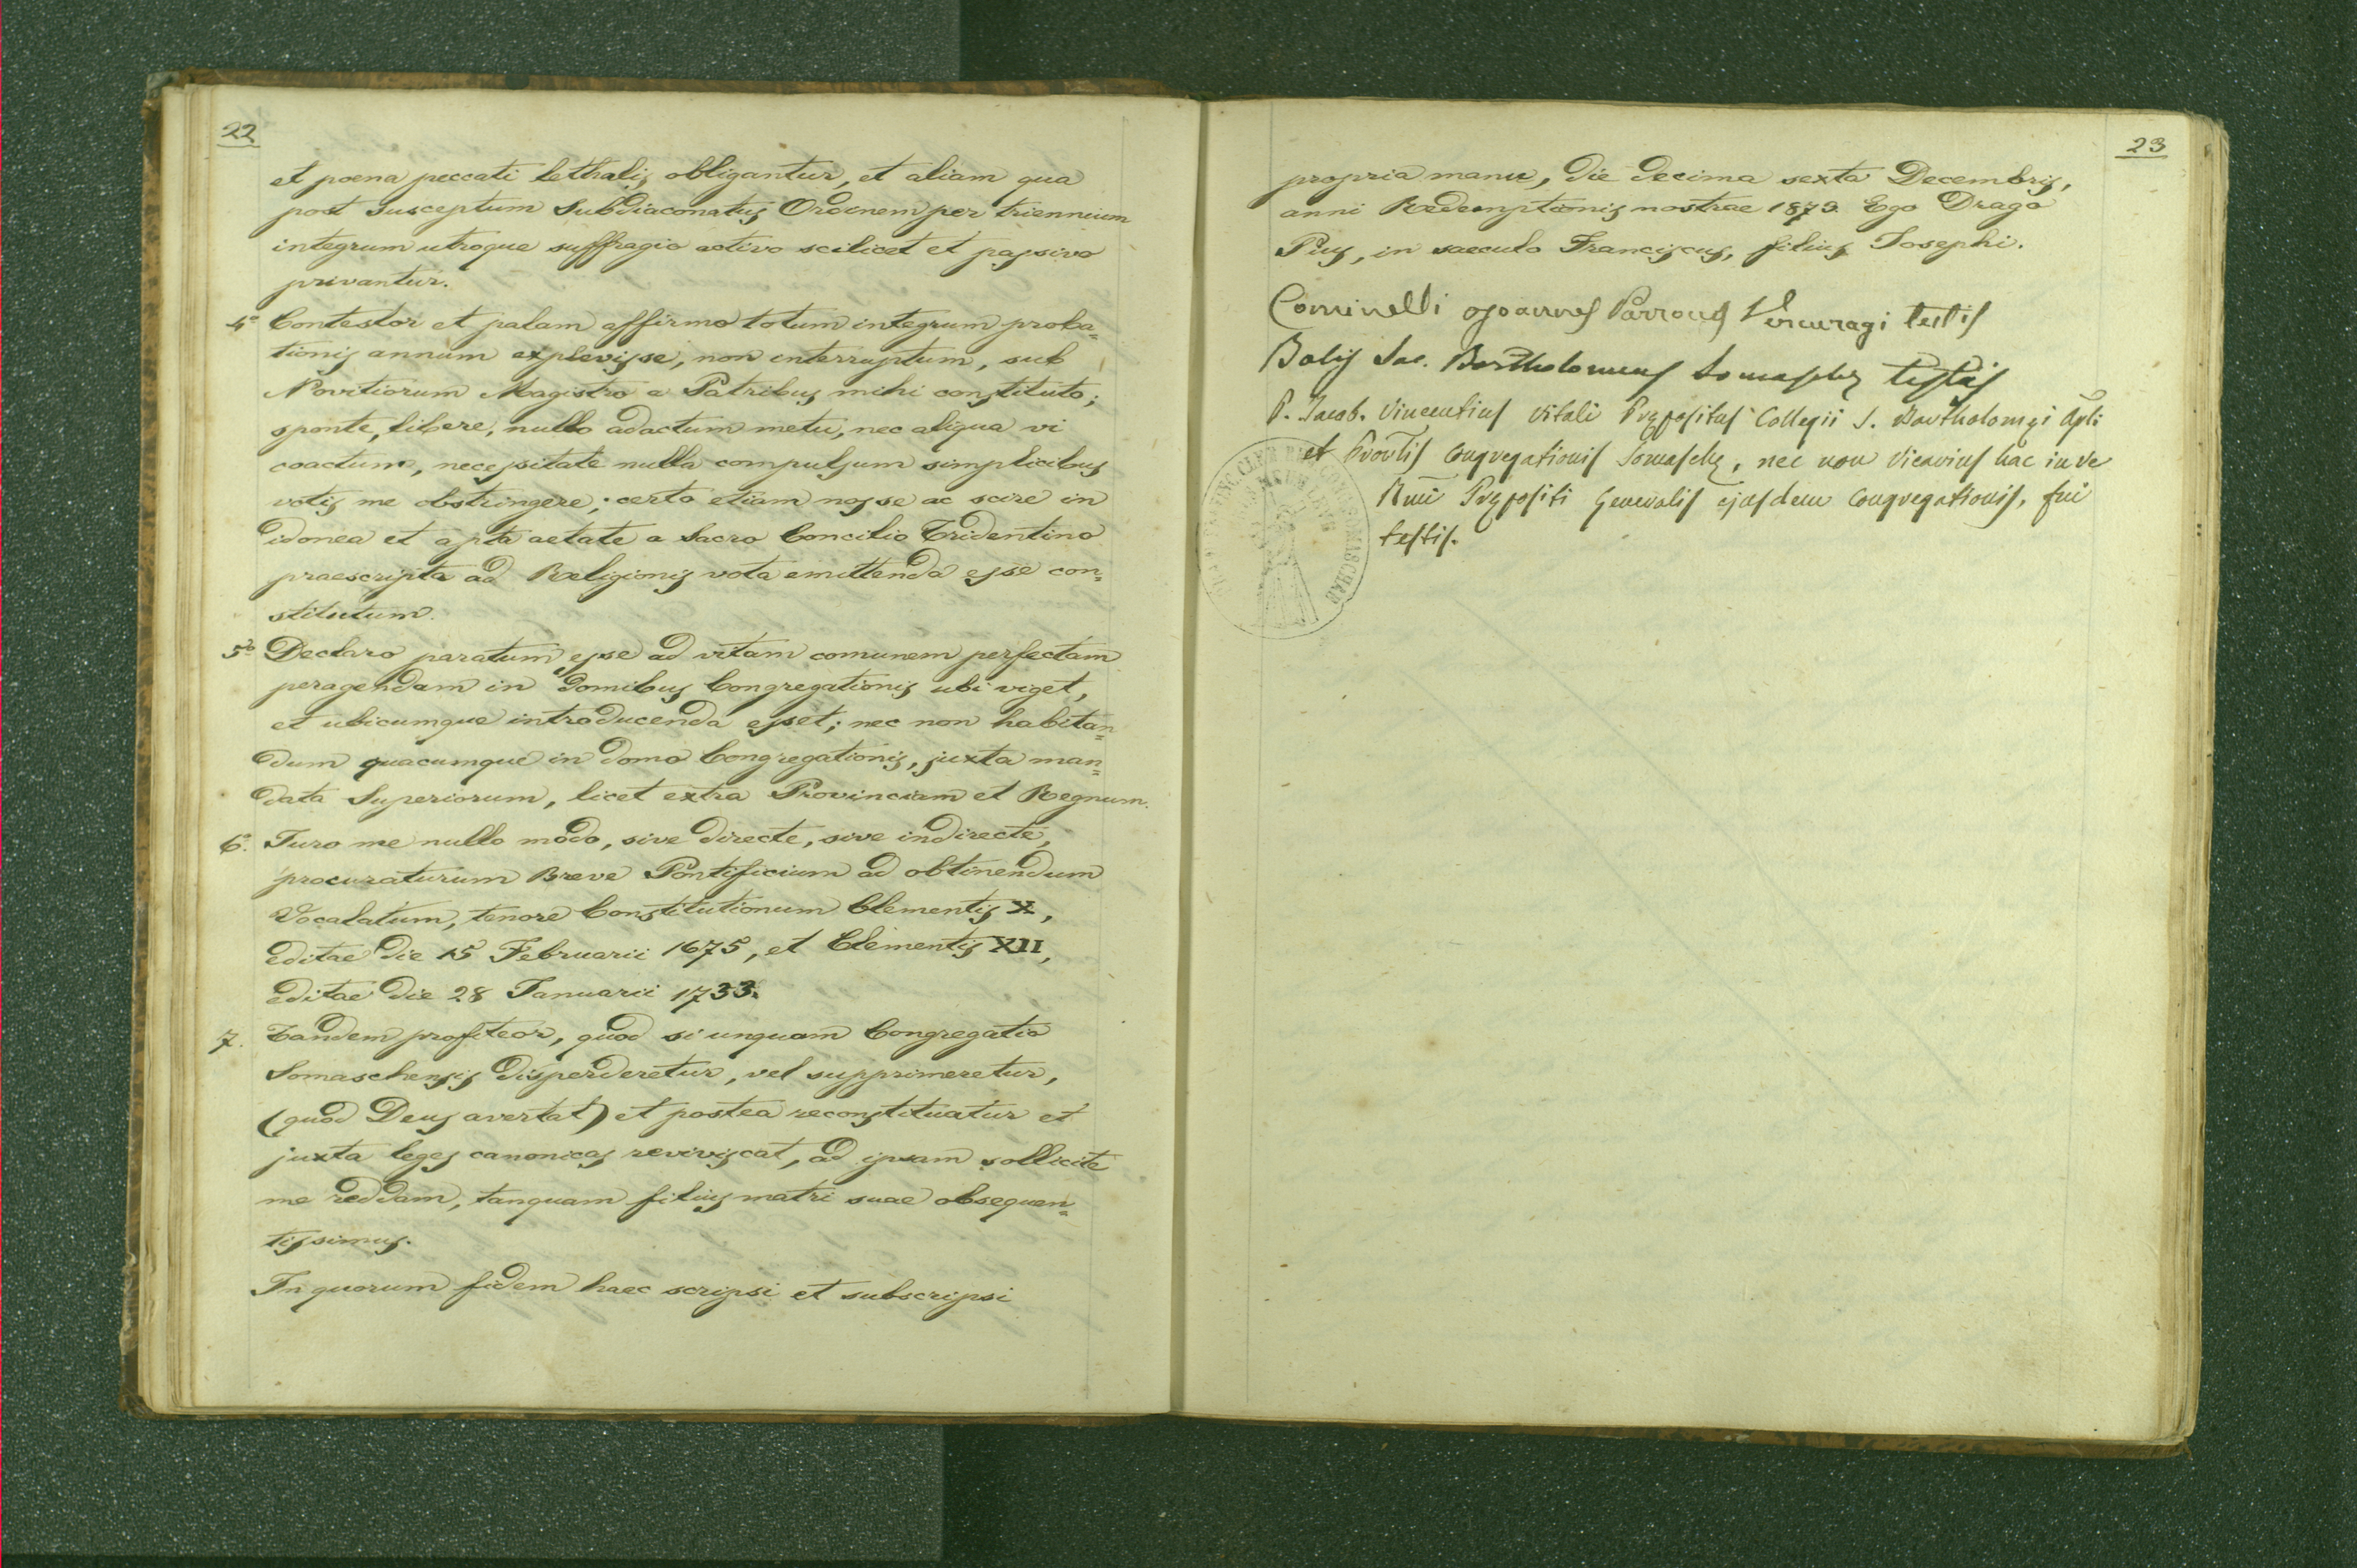 22
et poena peccati lethalis obligantur, et aliam qua
post susceptum Subdiaconatus Ordinem per triennium
integrum utroque suffragio activo scilicet et passivo
privantur.
4º Contestor et palam affirmo totum integrum proba=
tionis annum explevisse, non interruptum, sub
Novitiorum Magistro a Patribus mihi constituto;
sponte, libere, nullo adactum metu, nec aliqua vi
coactum, necessitate nulla compulsum simplicibus
votis me obstringere; certo etiam nosse ac scire in
idonea et apta aetate a Sacro Concilio Tridentino
praescripta ad Religionis vota emittenda esse con=
stitutum.
5º Declaro paratum esse ad vitam comunem perfectam
peragendam in domibus Congregationis ubi viget,
et ubicumque introducenda esset; nec non habitan=
dum quacumque in domo Congregationis, juxta man=
data Superiorum, licet extra Provinciam et Regnum.
6º. Juro me nullo modo, sive directe, sive indirecte,
procuraturum Breve Pontificium ad obtinendum
Vocalatum, tenore Constitutionum Clementis X,
editae die 15 Februarii 1675, et Clementis XII,
editae die 28 Januarii 1733.
7. Tandem profiteor, quod si unquam Congregatio
Somaschensis disperderetur, vel supprimeretur,
(quod Deus avertat) et postea reconstituatur et
juxta leges canonicas reviviscat, ad ipsam sollicite
me reddam, tanquam filius matri suae obsequen=
tissimus.
In quorum fidem haec scripsi et subscripsi
23
propria manu, die decima sexta Decembris,
anni Redemptionis nostrae 1879. Ego Drago
Pius, in saeculo Franciscus, filius Josephi.
Cominelli Joannes Parrocus Vercuragi testis
Bolis Sac. Bartholomeus Somaschę testis
P. Jacob. Vincentius Vitali Prępositus Collegii S. Bartholomęi Apli
et Provlis Congregationis Somaschę, nec non Vicarius hac in re
Rmi Prępositi Generalis ejusdem Congregationis, fui
testis.